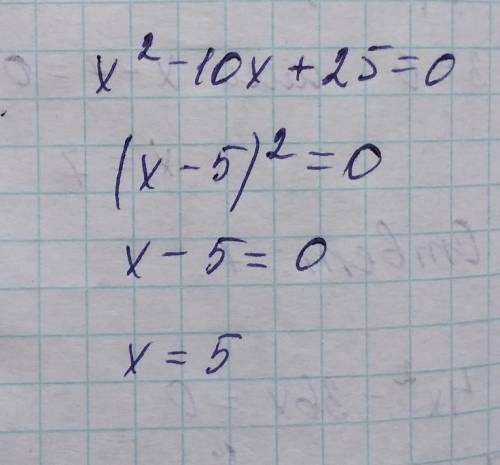 x² - 10x + 25 = 0
(x - 5)² = 0
x - 5 = 0
x = 5